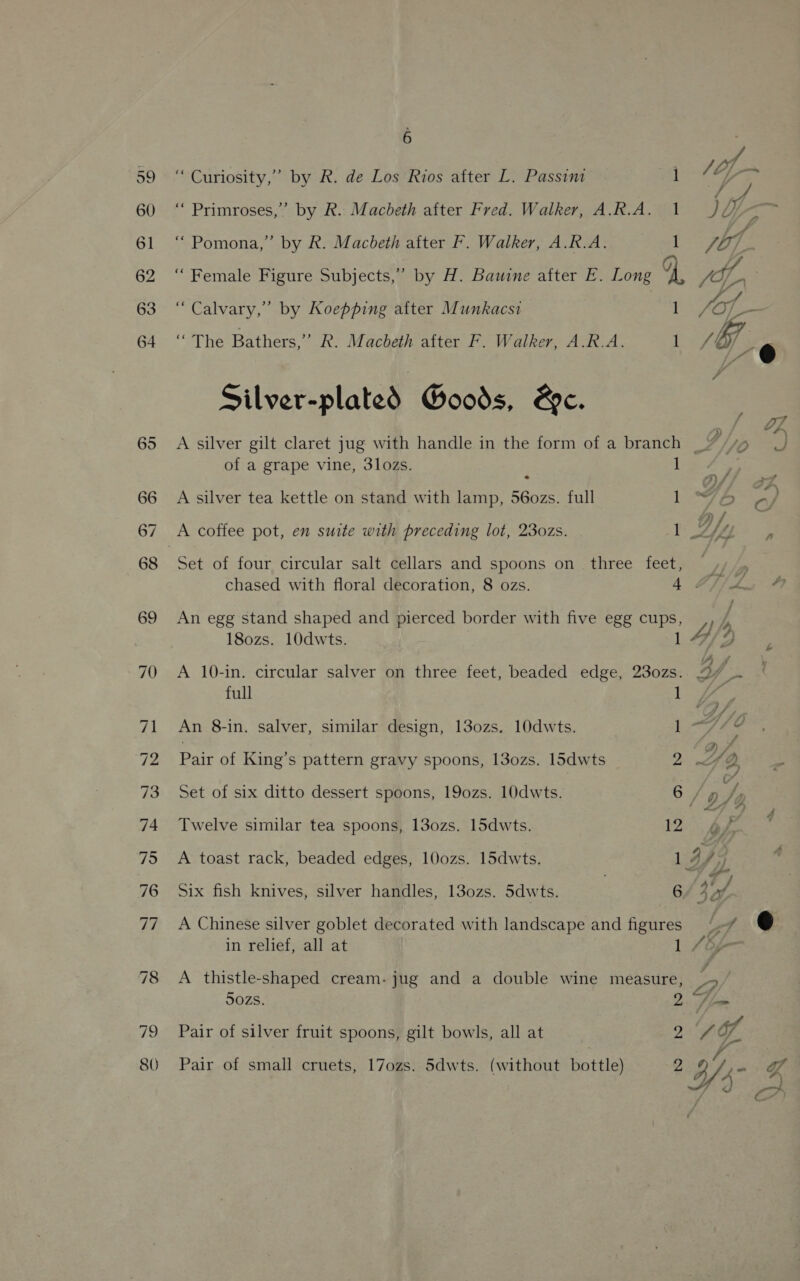 6
59 “ Curiosity,” by R. de Los Rios after L. Passini 1 10/-
60 “ Primroses,” by R. Macbeth after Fred. Walker, A.R.A. 1 10/-
61 “ Pomona,” by R. Macbeth after F. Walker, A.R.A. 1 10/-
62 “ Female Figure Subjects,” by H. Bauine after E. Long
63 “ Calvary,” by Koepping after Munkacsi 1 10/-
64 “ The Bathers,” R. Macbeth after F. Walker, A.R.A. 1
Silver-plated Goods, &c.
65 A silver gilt claret jug with handle in the form of a branch
of a grape vine, 31ozs. 1
66 A silver tea kettle on stand with lamp, 56ozs. full 1
67 A coffee pot, en suite with preceding lot, 23ozs. 1
68 Set of four circular salt cellars and spoons on three feet,
chased with floral decoration, 8 ozs. 4
69 An egg stand shaped and pierced border with five egg cups,
18ozs. 10dwts. 1
70 A 10-in. circular salver on three feet, beaded edge, 23ozs.
full 1
71 An 8-in. salver, similar design, 13ozs. 10dwts. 1
72 Pair of King’s pattern gravy spoons, 13ozs. 15dwts 2
73 Set of six ditto dessert spoons, 19ozs. 10dwts. 6
74 Twelve similar tea spoons, 13ozs. 15dwts. 12
75 A toast rack, beaded edges, 10ozs. 15dwts. 1
76 Six fish knives, silver handles, 13ozs. 5dwts. 6
77 A Chinese silver goblet decorated with landscape and figures
in relief, all at 1
78 A thistle-shaped cream jug and a double wine measure,
5ozs. 2
79 Pair of silver fruit spoons, gilt bowls, all at 2
80 Pair of small cruets, 17ozs. 5dwts. (without bottle) 2